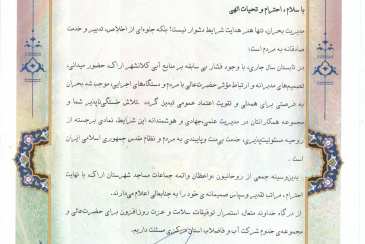 با سلام، احترام و تحیات الهی
مدیریت بحران، تنها هنر هدایت شرایط دشوار نیست؛ بلکه جلوه‌ای از اخلاص، تدبیر و خدمت
صادقانه به مردم است؛
در تابستان سال جاری، با وجود فشار بی سابقه بر منابع آبی کلانشهر اراک، حضور میدانی،
تصمیم‌های مدبرانه و ارتباط مؤثر حضرت‌عالی با مردم و دستگاه‌های اجرایی، موجب شد بحران
به فرصتی برای همدلی و تقویت اعتماد عمومی تبدیل گردد. تلاش خستگی‌ناپذیر شما و
مجموعه همکارانتان در مدیریت علمی، جهادی و هوشمندانه این شرایط، نمادی برجسته از
روحیه مسئولیت‌پذیری، خدمت بی‌منت و پایبندی به مردم و نظام مقدس جمهوری اسلامی ایران
است.
بدین‌وسیله جمعی از روحانیون، واعظان وائمه جماعات مساجد شهرستان اراک با نهایت
احترام، مراتب تقدیر و سپاس صمیمانه‌ی خود را به جنابعالی اعلام می‌دارند.
از درگاه خداوند متعال، استمرار توفیقات، سلامت و عزت روزافزون برای حضرت‌عالی و
مجموعه‌ی خدوم شرکت آب و فاضلاب استان مرکزی مسئلت داریم.